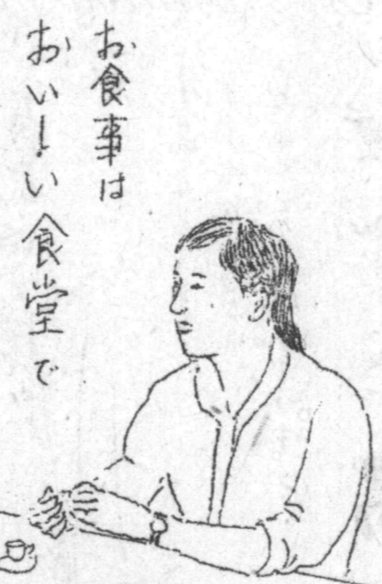 お食事は
おいしい食堂で